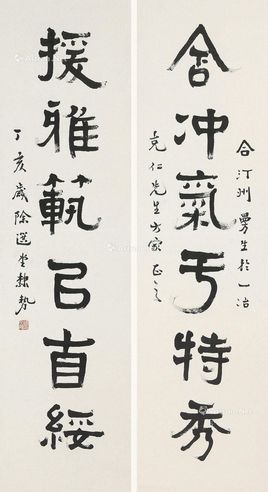 含冲氣于特秀
合汀洲曼生於一冶
克仁先生方家正之
援雅範㠯直綏
丁亥歲除選堂隸勢